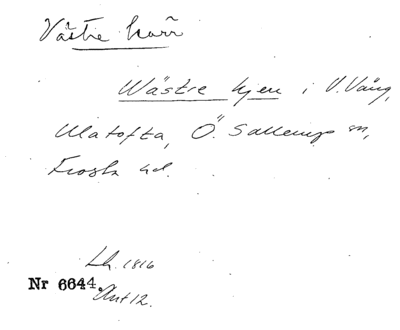 Västre kärr
Wästre kjer i V. Vång,
Ulatofta, Ö. Sallerup sn,
Frosta hd.
Lh. 1816
Nr 6644. Akt 12.